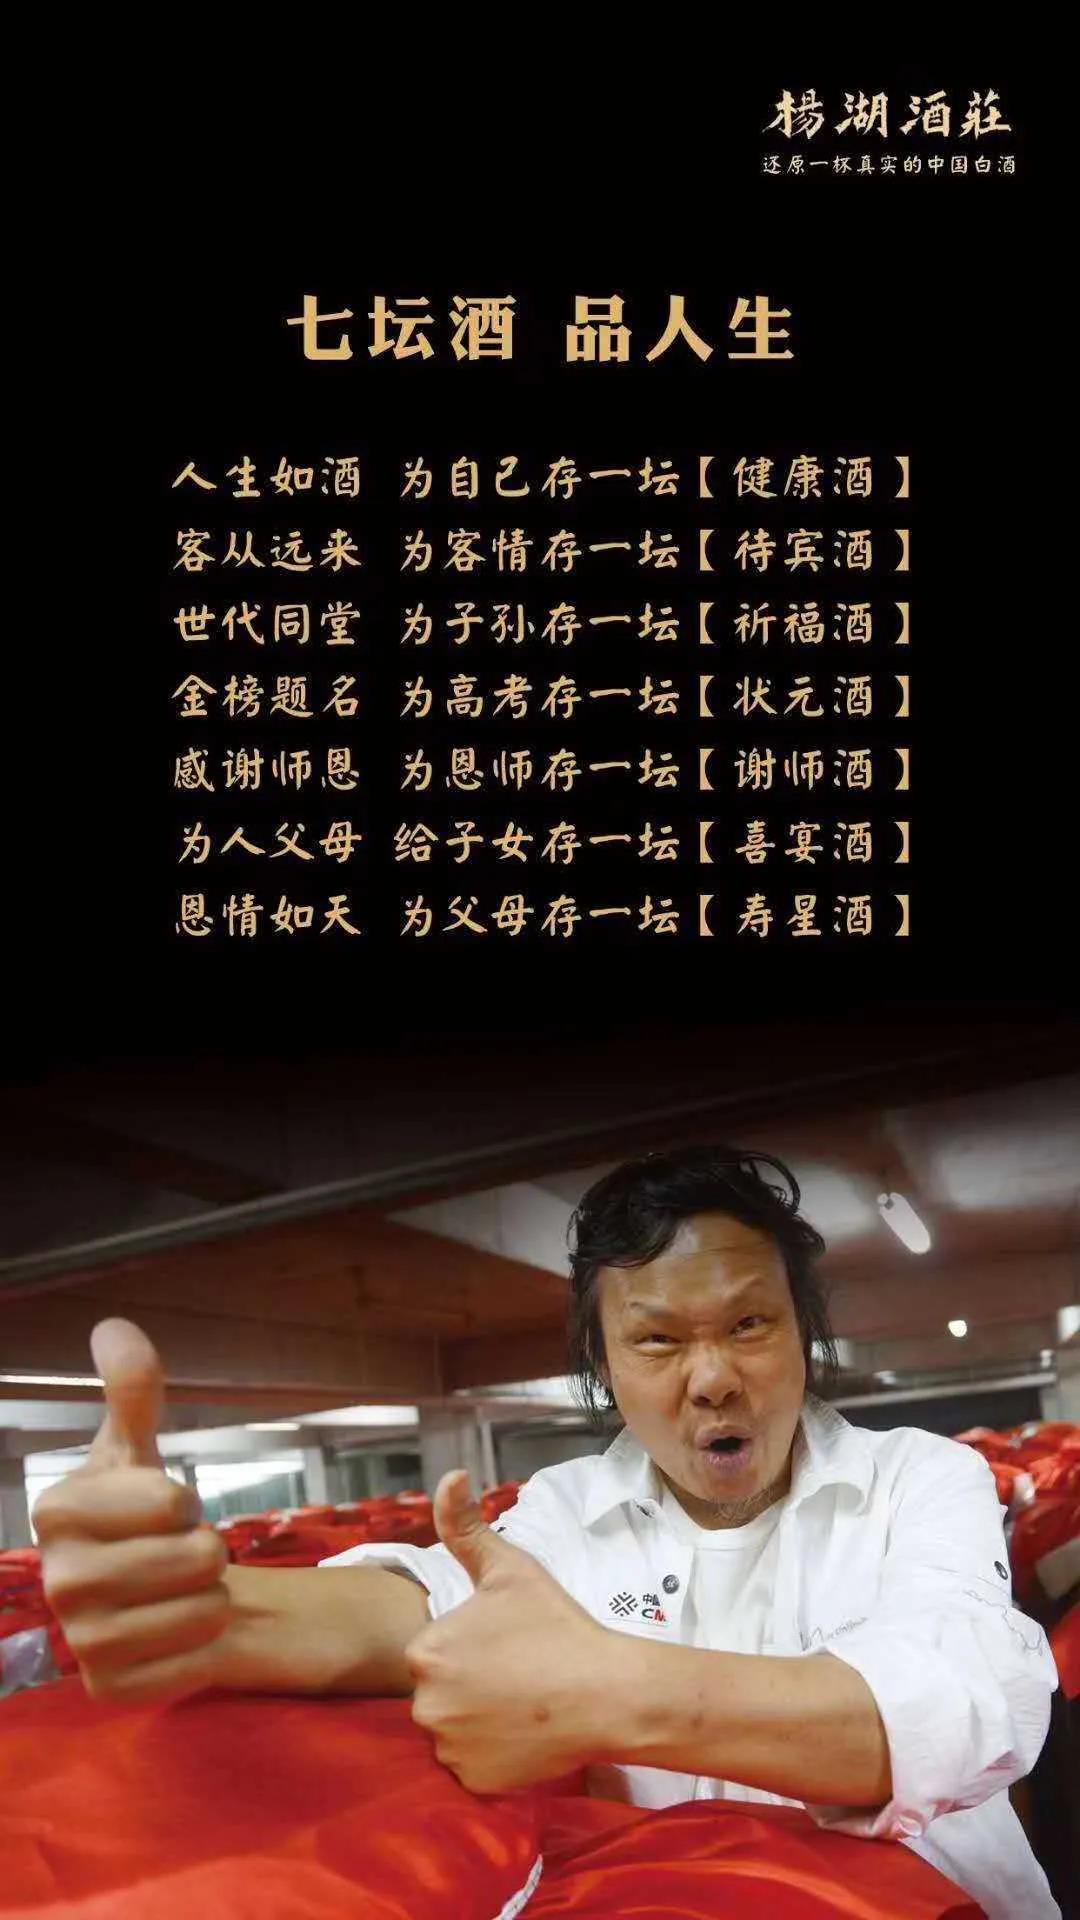 楊湖酒莊
还原一杯真实的中国白酒
七坛酒 品人生
人生如酒 为自己存一坛【健康酒】
客从远来 为客情存一坛【待宾酒】
世代同堂 为子孙存一坛【祈福酒】
金榜题名 为高考存一坛【状元酒】
感谢师恩 为恩师存一坛【谢师酒】
为人父母 给子女存一坛【喜宴酒】
恩情如天 为父母存一坛【寿星酒】
中
CM